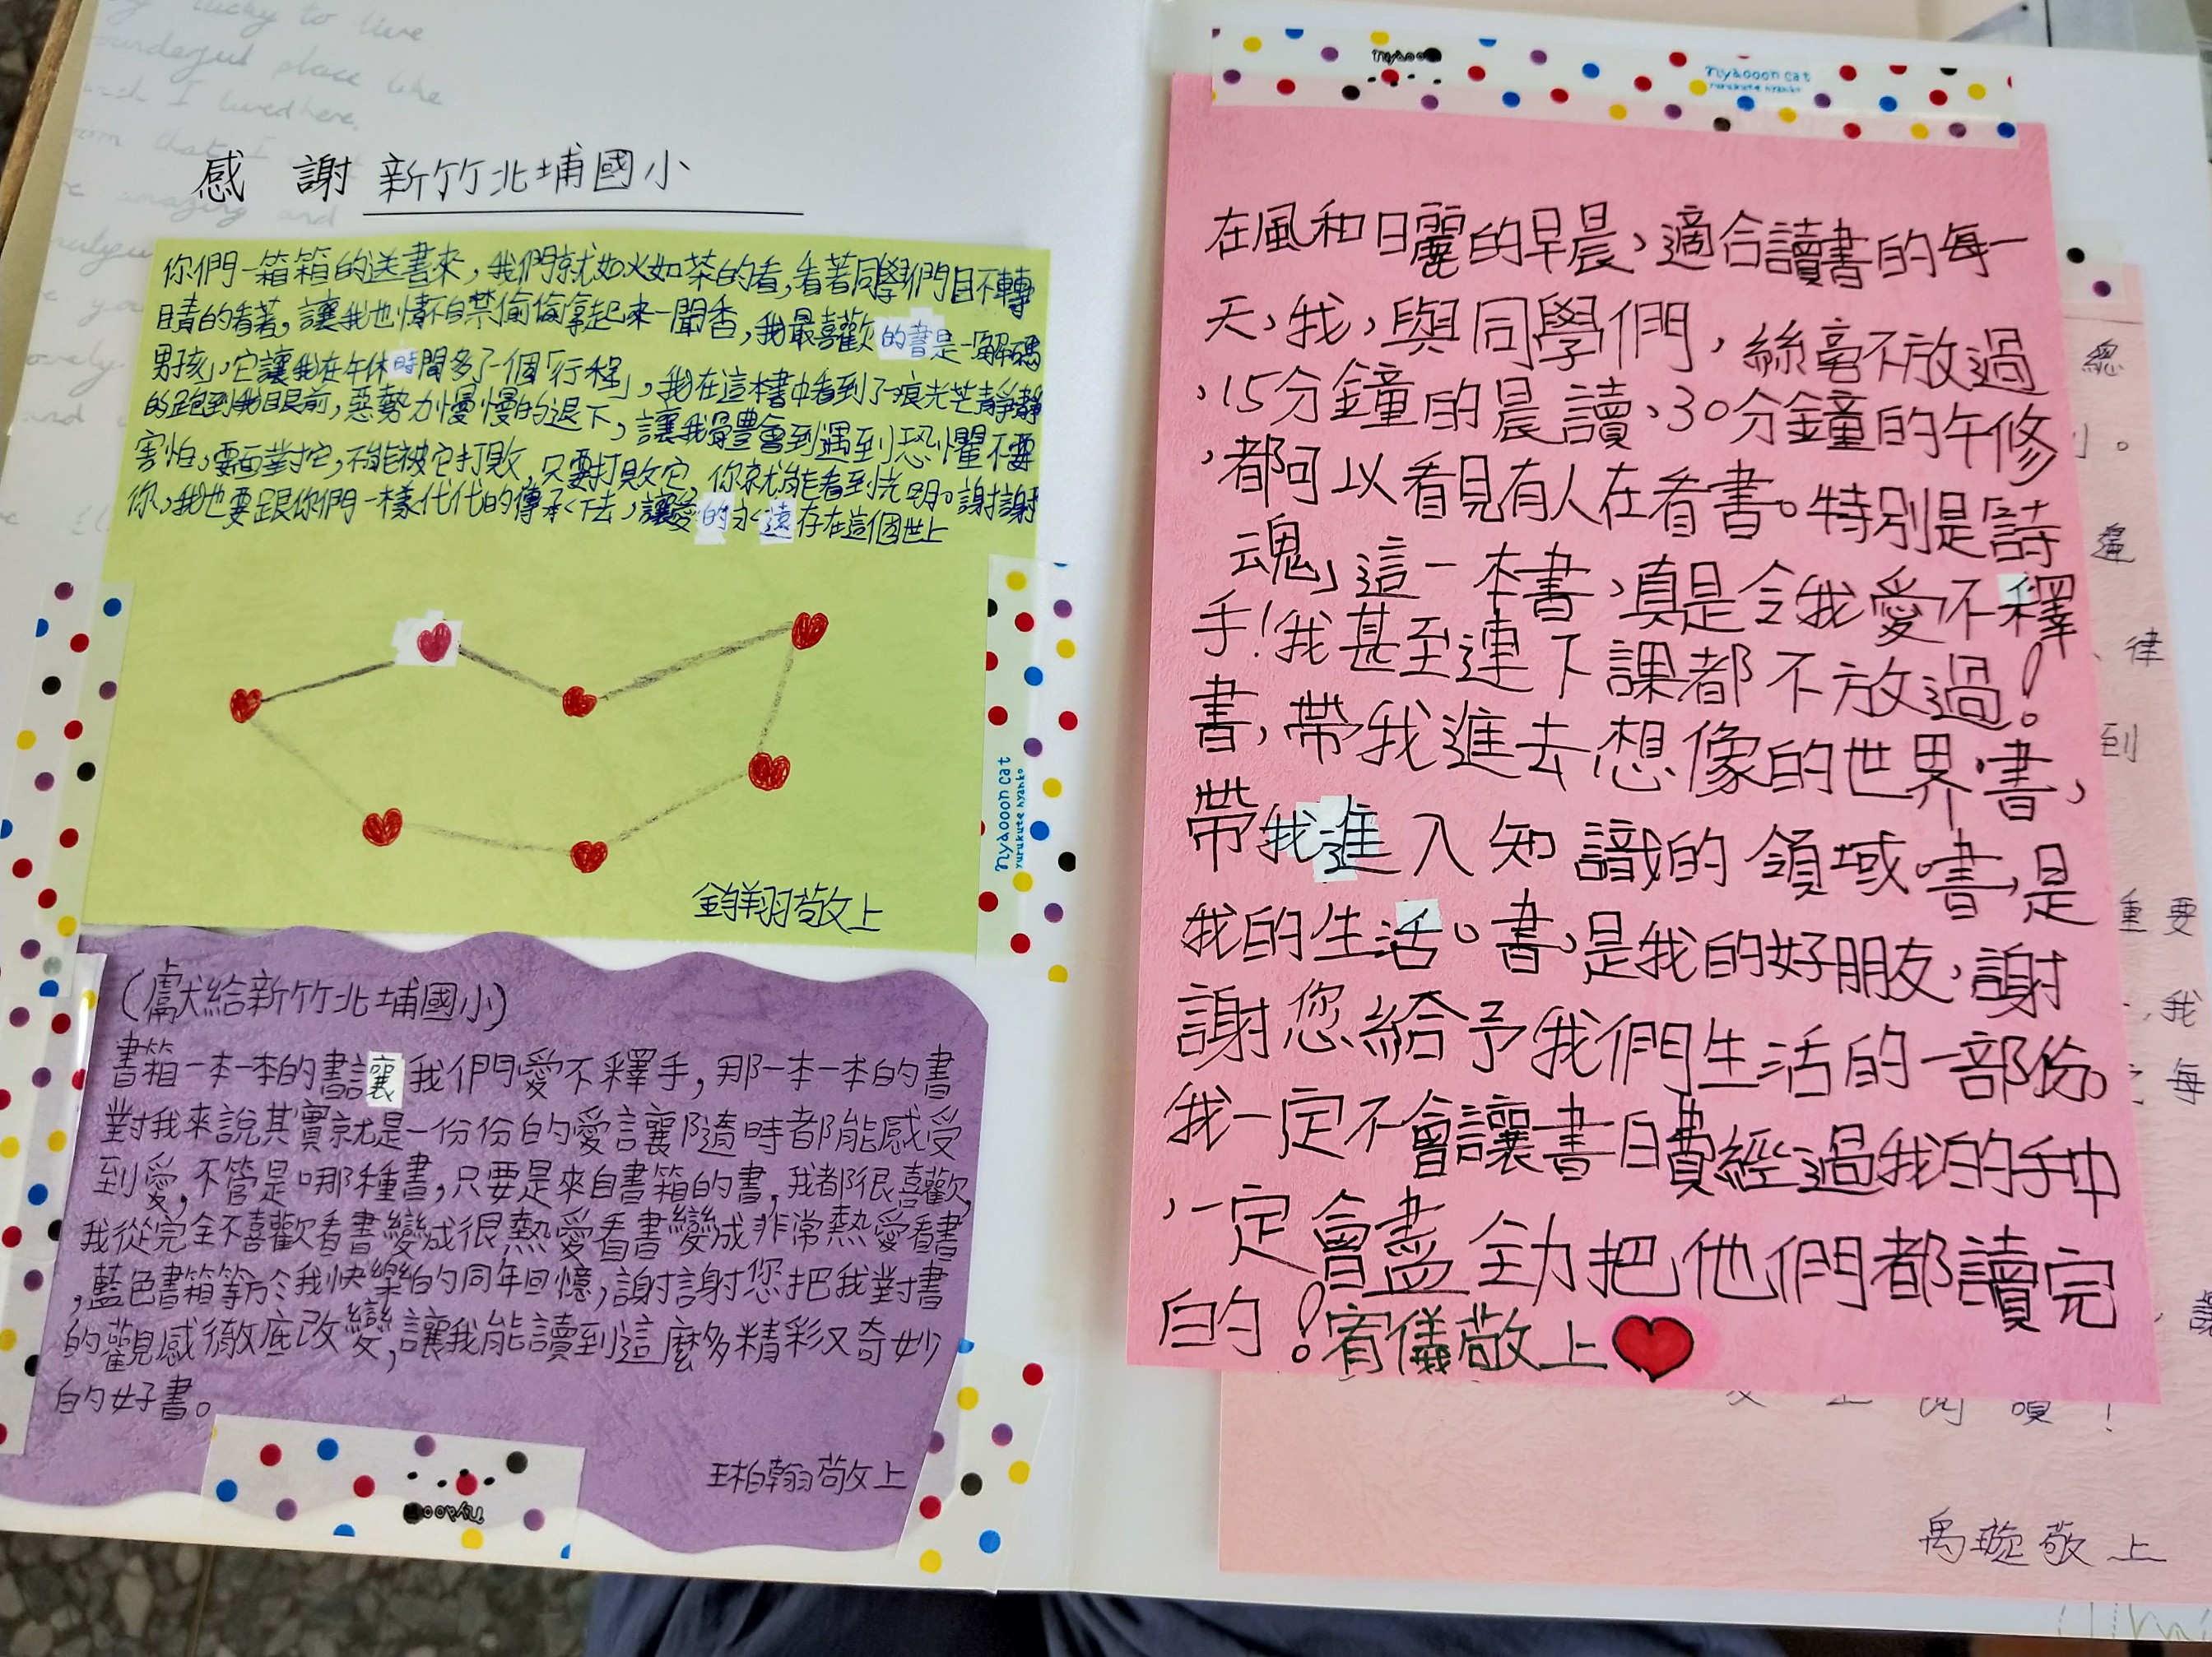 lucky to live
wonderful place like
I lived here.
that I
amazing and
感 謝 新竹北埔國小
你們一箱箱的送書來，我們就如火如荼的看，看著同學們目不轉
睛的看著，讓我也情不自禁偷偷拿起來一聞香，我最喜歡的書是「解碼
男孩」，它讓我在午休時間多了一個「行程」，我在這本書中看到了痕光芒靜靜
的跑到我眼前，惡勢力慢慢的退下，讓我體會到遇到恐懼不要
害怕，要面對它，不能被它打敗，只要打敗它，你就能看到光明。謝謝
你，我也要跟你們一樣代代的傳承下去，讓愛的永遠存在這個世上
敬上
(獻給新竹北埔國小)
書箱一本一本的書讓我們愛不釋手，那一本一本的書
對我來說其實就是一份份的愛讓隨時都能感受
到愛，不管是哪種書，只要是來自書箱的書，我都很喜歡，
我從完全不喜歡看書變成很熱愛看書變成非常熱愛看書
，藍色書箱等於我快樂的同年回憶，謝謝您把我對書
的觀感徹底改變，讓我能讀到這麼多精彩又奇妙
的好書。
王柏翰敬上
nyaooon cat
yurukute nyanko
nyaooon cat
yurukute nyanko
在風和日麗的早晨，適合讀書的每一
天，我，與同學們，絲毫不放過
，15分鐘的晨讀、30分鐘的午修
，都可以看見有人在看書。特別是「詩
魂」這一本書，真是令我愛不釋
手！我甚至連下課都不放過！
書，帶我進去想像的世界。書，
帶我進入知識的領域。書，是
我的生活。書，是我的好朋友，謝
謝您給予我們生活的一部份。
我一定不會讓書白費經過我的手中
，一定會盡全力把他們都讀完
的！宥儀敬上
總
律
到
重要
，我
每
！
禹璇敬上